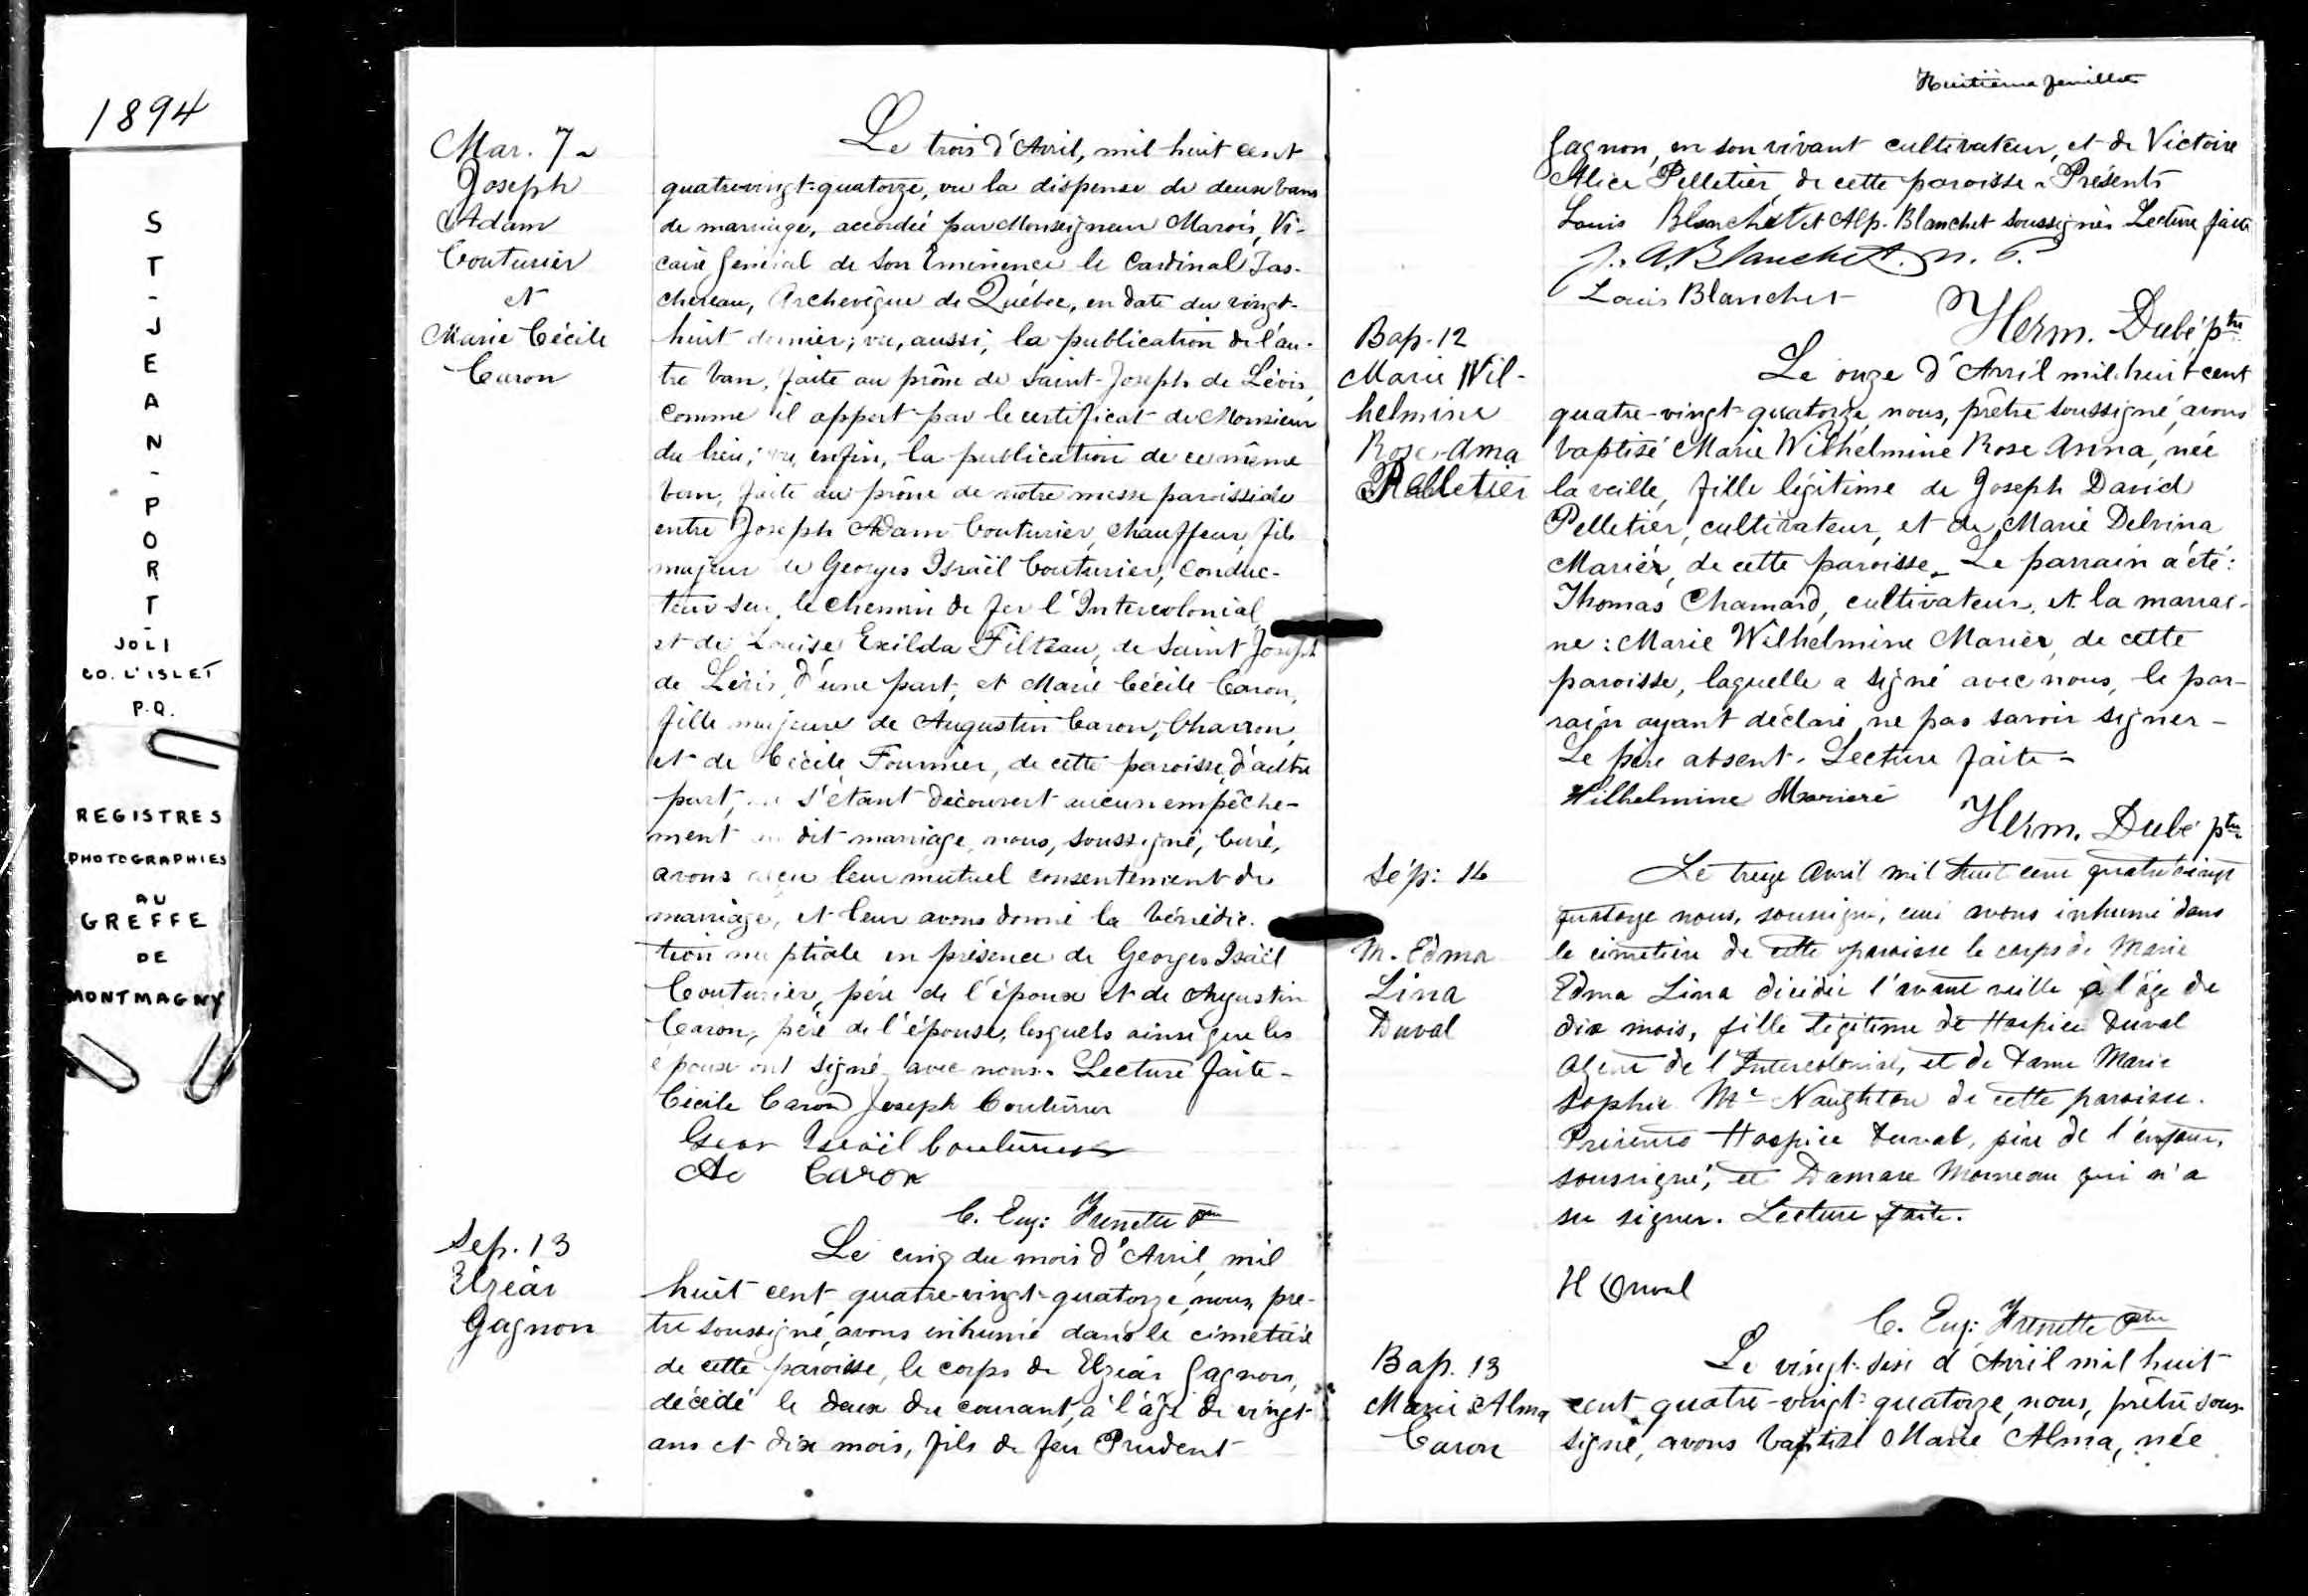 1894
ST-JEAN-PORT-
JOLI
CO. L'ISLET
P.Q.
REGISTRES
PHOTOGRAPHIES
AU
GREFFE
DE
MONTMAGNY
Mar. 7-
Joseph
Adam
Couturier
et
Marie Cécile
Caron
Le trois d'Avril, mil huit cent
quatre-vingt-quatorze, vu la dispense de deux bans
de mariage, accordée par Monseigneur Marois, Vi-
caire Général de Son Eminence le Cardinal Tas-
chereau, Archevêque de Québec, en date du vingt-
huit dernier; vu, aussi, la publication de l'au-
tre ban, faite au prône de Saint-Joseph de Lévis,
comme il appert par le certificat de Monsieur
du lieu; vu, enfin, la publication de ce même
ban, faite au prône de notre messe paroissiale
entre Joseph Adam Couturier, chauffeur, fils
majeur de Georges Israël Couturier, conduc-
teur sur le chemin de fer l'Intercolonial,
et de Louise Exilda Filteau, de Saint Joseph
de Lévis, d'une part, et Marie Cécile Caron,
fille majeure de Augustin Caron, Charron,
et de Cécile Fournier, de cette paroisse, d'autre
part, ne s'étant découvert aucun empêche-
ment au dit mariage, nous, soussigné, Curé,
avons reçu leur mutuel consentement de
mariage, et leur avons donné la bénédic-
tion nuptiale en présence de Georges Israël
Couturier, père de l'époux et de Augustin
Caron, père de l'épouse, lesquels ainsi que les
époux ont signé avec nous. Lecture faite -
Cécile Caron Joseph Couturier
Geor Israël Couturier
Au Caron
C. Eug: Frenette Ptre
Sep. 13
Elzéar
Gagnon
Le cinq du mois d'Avril, mil
huit cent quatre-vingt-quatorze, nous, prê-
tre soussigné, avons inhumé dans le cimetière
de cette paroisse, le corps de Elzéar Gagnon,
décédé le deux du courant, à l'âge de vingt-
ans et dix mois, fils de feu Prudent
Huitième feuillet
Gagnon, en son vivant cultivateur, et de Victoire
Alice Pelletier, de cette paroisse. Présents
Louis Blanchet et Alp. Blanchet soussignés Lecture faite
J. A. Blanchet. N. P.
Louis Blanchet
Herm. Dubé ptre
Bap. 12
Marie Wil-
helmine
Rose-Ama
Pelletier
Le onze d'Avril mil huit cent
quatre-vingt-quatorze, nous, prêtre soussigné, avons
baptisé Marie Wilhelmine Rose Anna, née
la veille, fille légitime de Joseph David
Pelletier, cultivateur, et de Marie Delvina
Marier, de cette paroisse. Le parrain a été:
Thomas Chamard, cultivateur, et la marrai-
ne: Marie Wilhelmine Marier, de cette
paroisse, laquelle a signé avec nous, le par-
rain ayant déclaré ne pas savoir signer -
Le père absent. Lecture faite -
Wilhelmine Marier
Herm. Dubé ptre
Sép: 14
M. Edma
Lina
Duval
Le treize Avril mil huit cent quatre vingt
quatorze nous, soussigné, curé avons inhumé dans
le cimetière de cette paroisse le corps de Marie
Edma Lina décédée l'avant veille à l'âge de
dix mois, fille légitime de Hospice Duval
agent de l'Intercolonial, et de Dame Marie
Sophie Mc Naughton de cette paroisse.
Présents Hospice Duval, père de l'enfant,
soussigné, et Damase Morneau qui n'a
su signer. Lecture faite.
H Duval
C. Eug: Frenette Ptre
Bap. 13
Marie Alma
Caron
Le vingt-six d'Avril mil huit
cent quatre-vingt-quatorze, nous, prêtre sous-
signé, avons baptisé Marie Alma, née